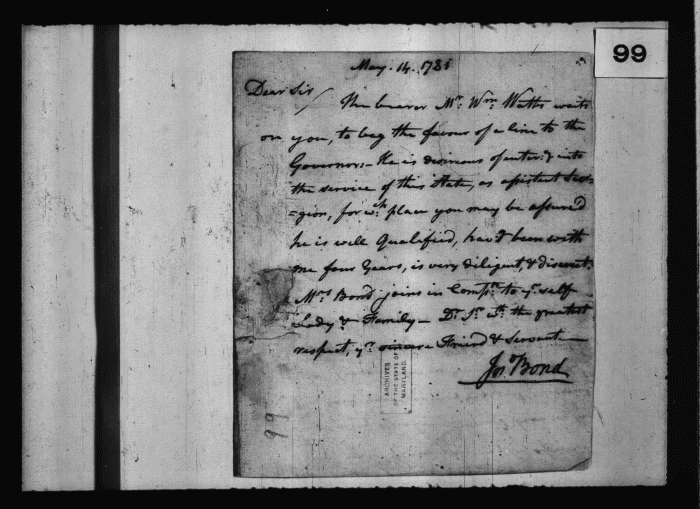 99
May. 14. 1781
Dear Sir
The bearer Mr. Wm. waits
on you, to beg the favour of a line to the
Governor:- He is desirous of enter:g into
the service of this State, as assistent Sur=
=gion, for wch place you may be assured
he is well Qualified, hav:g been with
me four Years, is very diligent, & discreet.
Mrs Bond joins in Compts to yr self
Lady & Family - Dr Sr the greatest
respect, yr sincere Friend & Servant
Bond
ARCHIVES
OF THE STATE OF
MARYLAND.
99